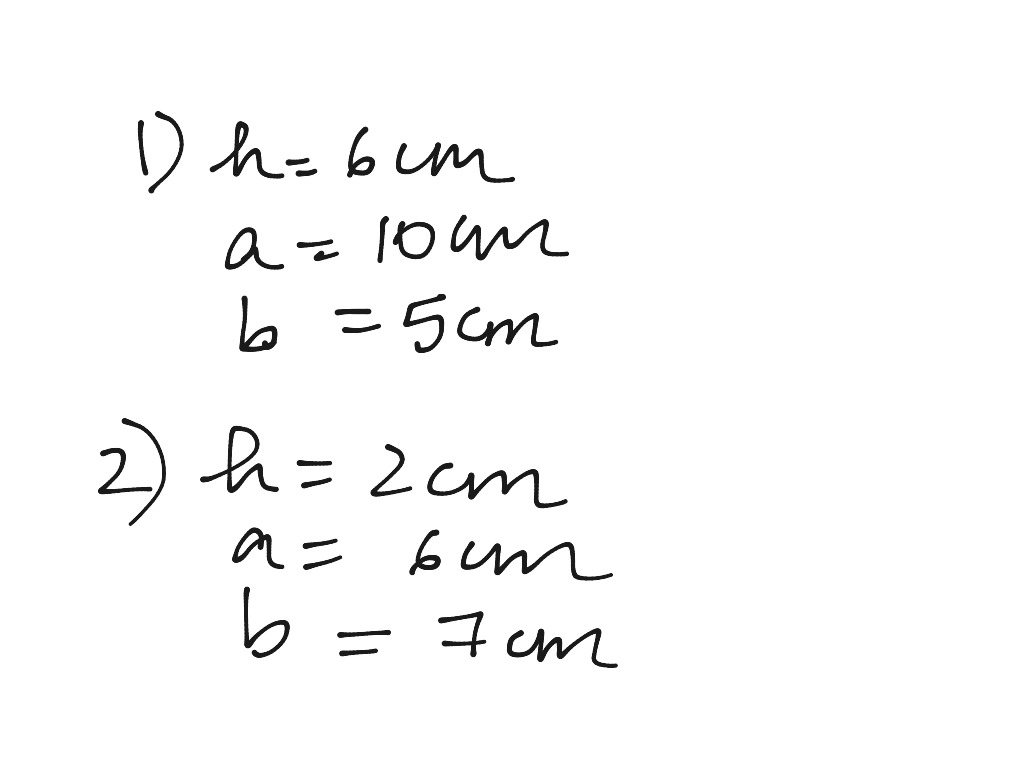 1) h = 6 cm
a = 10 cm
b = 5 cm
2) h = 2 cm
a = 6 cm
b = 7 cm